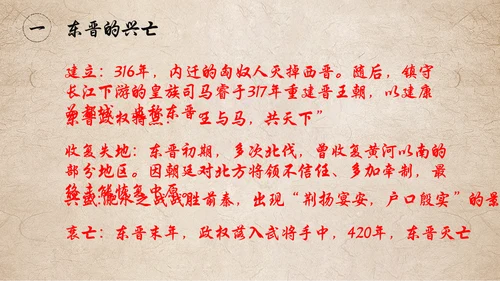 一 东晋的兴亡
建立：316年，内迁的匈奴人灭掉西晋。随后，镇守
长江下游的皇族司马睿于317年重建晋王朝，以建康
东晋
政权特点：“王与马，共天下”
收复失地：东晋初期，多次北伐，曾收复黄河以南的
部分地区。因朝廷对北方将领不信任、多加牵制，最
战胜前秦，出现“荆扬宴安，户口殷实”的景
衰亡：东晋末年，政权落入武将手中，420年，东晋灭亡